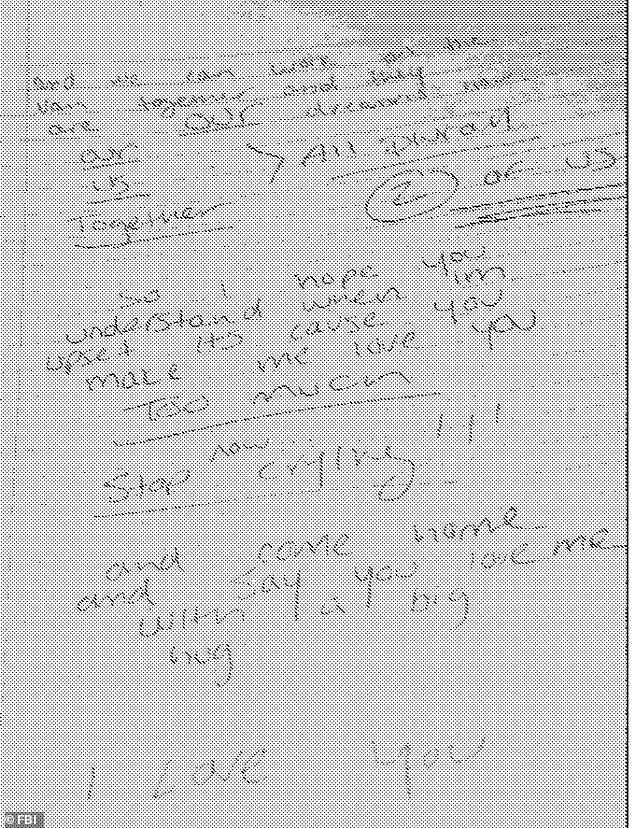 and we can work on the
van together and they
are OUR dreams now
our
us
Together
All
2 OF US
So I hope you
understand when im
upset its cause you
make me love you
TOO much
Stop now crying !!!
and come home
and say you love me
with a big
hug
I Love You
© FBI